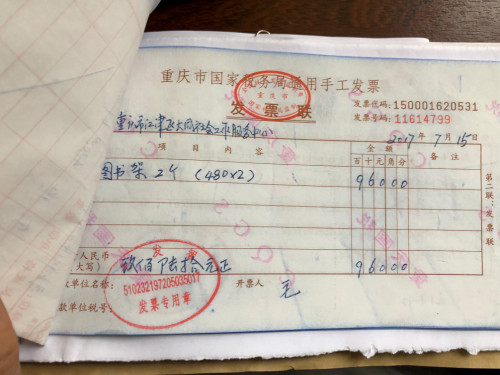 重庆市国家税务局通用手工发票
重庆市
发票联
发票代码:150001620531
发票号码:11614799
重庆市江津区大同社会工作服务中心
2017年7月15日
项目内容 金额 备注
百十元角分
图书架 2个 (480×2) 96000
第二联:发票联
人民币
(大写) 玖佰陆拾元正 96000
位名称: 开票人
款单位税号:
510232197205035017
发票专用章